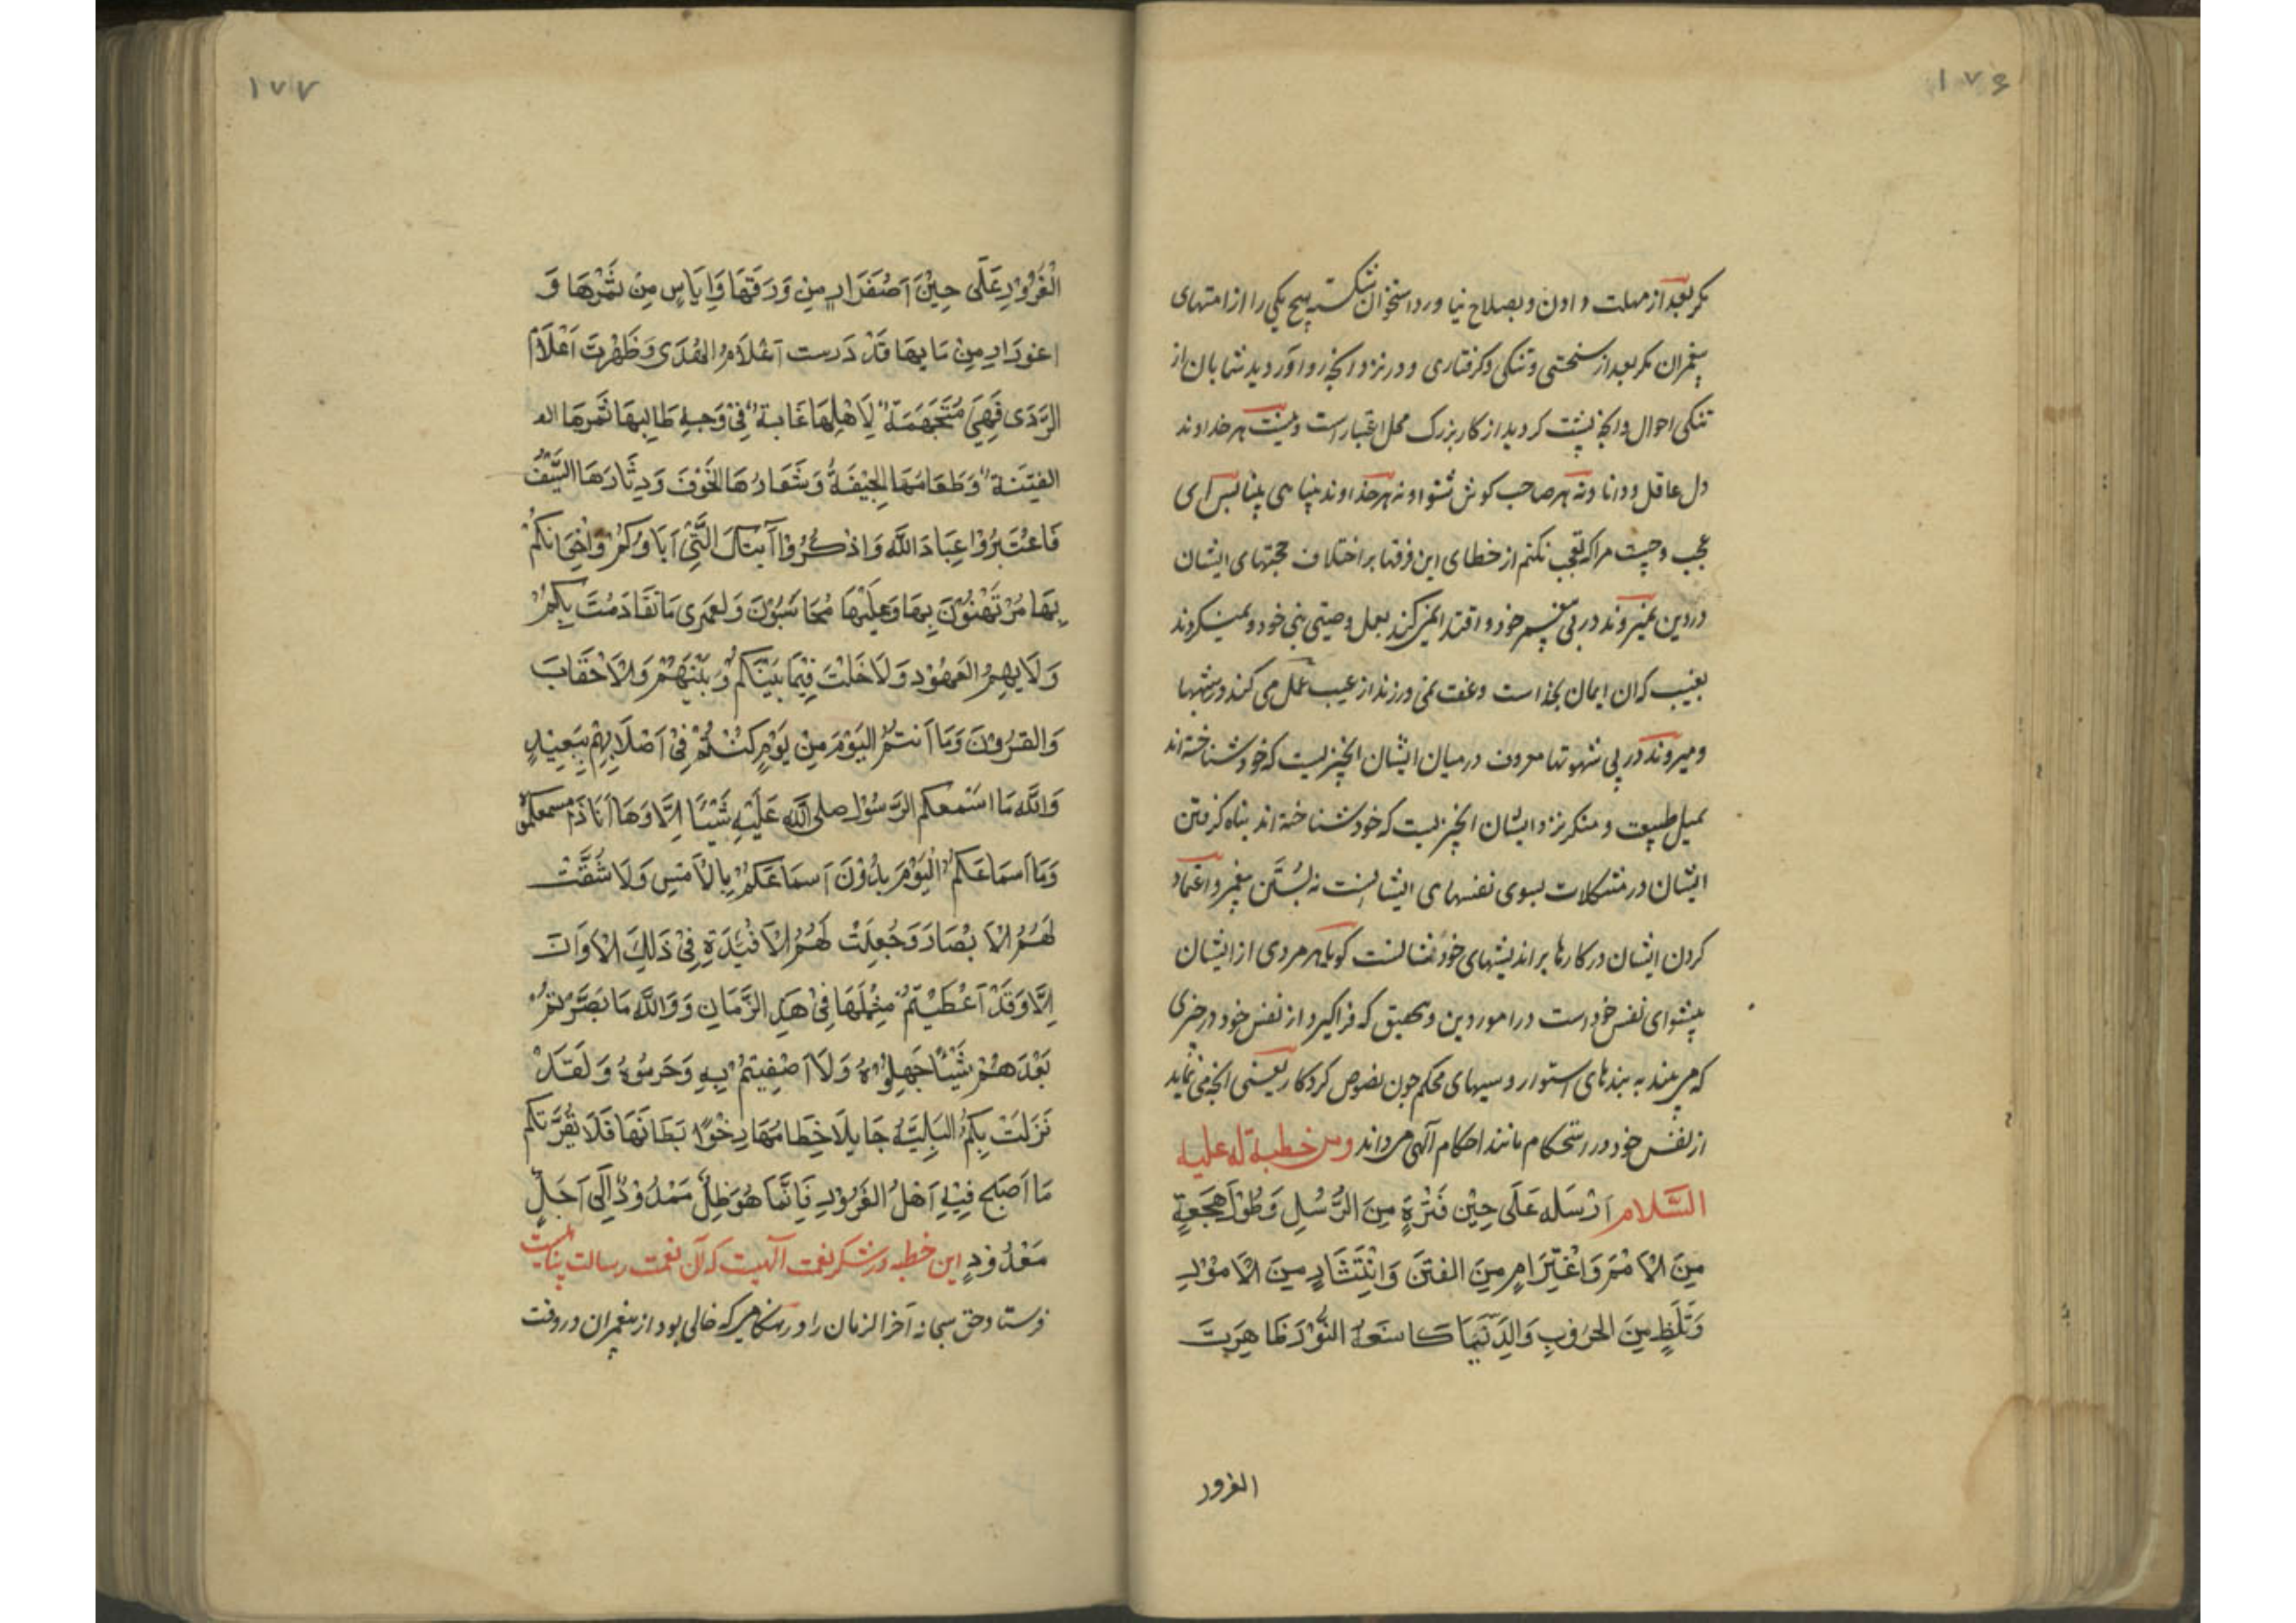 ۱۷۶
مکر بعد از مهلت دادن و بصلاح نیاورد استخوان شکسته هیچ یکی را از امتهای
پیغمبران مکر بعد از سختی و تنکی و کرفتاری و در نزد انچه رو آوردید شما بان از
تنکی احوال و انچه پشت کردید از کار بزرک محل اعتبار است و نیست هر خداوند
دل عاقل و دانا و نه هر صاحب کوش شنوا و نه هر خداوند بینا پس ای
عجب و چیست مرا که تعجب نکنم از خطای این فرقها بر اختلاف حجتهای ایشان
در دین نمیروند در پی پیغمبر خود و اقتدا نمیکنند بعمل وصیتی نبی خود و نمیکروند
بغیب که ان ایمان بخداست و عفت نمی ورزند از عیب عمل می کنند در شبهها
و میروند در پی شهوتها معروف در میان ایشان انچیزیست که خود شناخته اند
بمیل طبیعت و منکر نزد ایشان انچیزیست که خود شناخته اند پناه کرفتن
ایشان در مشکلات بسوی نفسهای ایشانست نه بسنت پیغمبر و اعتماد
کردن ایشان در کارها بر اندیشهای خودشانست کویا هر مردی از ایشان
پیشوای نفس خود است در امور دین و بتحقیق که فرا کیرد از نفس خود در چیزی
که می بیند به بندهای استوار و سببهای محکم چون نصوص کردکار یعنی انچه می نماید
از نفس خود در استحکام مانند احکام الهی میداند ومن خطبة له علیه
السَّلام اَرْسَله عَلَى حِیْنِ فَتْرَةٍ مِنَ الرُّسُلِ وَطُوْلِ هَجْعَةٍ
مِنَ الْاُمَمِ وَاعْتِزَامٍ مِنَ الفِتَنِ وَانْتِشَارٍ مِنَ الْاُمُوْرِ
وَتَلَظٍّ مِنَ الحُرُوْبِ وَالدُّنْیَا کَاسِفَةُ النُّوْرِ ظَاهِرَتَ
الغرور
۱۷۷
الْغُرُوْرِ عَلَى حِیْنِ اَصْفَرَارٍ مِنْ وَرَقِهَا وَاِیَاسٍ مِنْ ثَمَرِهَا وَ
اغورَارٍ مِنْ مَایِهَا قَدْ دَرست اَعْلَامُ الْهُدَى وَظَهَرَتَ اَعْلَامُ
الرَّدَى فَهِیَ مُتَجَهِّمَةٌ لِاَهْلِهَا عَابِسَةٌ فِیْ وَجْهِ طَالِبِهَا ثَمَرهَا
الفِتْنَةُ وَطَعَامُهَا الجِیْفَةُ وَشِعَارُهَا الخَوْفَ وَدِثَارُهَا السَّیْفُ
فَاعْتَبِرُوْا عِبَادَ اللَّهِ وَاذْکُرُوْا آتِیْکَ الَّتِیْ آبَاؤُکُمْ وَاِخْوَانُکُمْ
بِهَا مُرْتَهِنُوْنَ بِهَا وَعَلَیْهَا مُحَاسَبُوْنَ وَلَعَمْرِی مَا تَقَادَمَتَ بِکُمْ
وَلَا بِهِمُ العُهُوْد وَلَا خَلَتْ فِیْمَا بَیْنَکُمْ وَبَیْنَهُمْ وَالْاَحْقَابَ
وَالقُرُوْنَ وَمَا اَنْتُمُ الیَوْمَ مِنْ یَوْمٍ کُنْتُمْ فِیْ اَصْلَابِهِمْ بِبَعِیْدٍ
وَاللَّهِ مَا اسْمَعَکم الرَّسُوْل صلی اللّه عَلَیْهِ شَیْئًا اِلَّا وَهَا اَنَا ذَا مسمعکموه
وَمَا اَسْمَاعَکُمُ الْیَوْمَ بِدُوْنَ اَسمَاعَکُمْ بِالْاَمْسِ وَلَا شُقَّتْ
لَهُمُ الْاَبْصَارَ وَجُعِلَتْ لَهُمُ الْاَفْئِدَةِ فِیْ ذَلِکَ الْاَوَانَ
اِلَّا وَقَدْ اَعْطَیْتُمْ مِثْلَهَا فِیْ هَذِ الزَّمَانِ وَوَاللَّهِ مَا بُصِّرْتُمْ
بَعْدَهُمْ شَیْئًا جَهِلُوْهُ وَلَا اَصْفِیتُمْ بِهِ وَحَرِمُوْهُ وَلَقَدْ
نَزَلَتْ بِکُمُ البَلِیَّةُ جَایِلًا خِطَامُهَا رِخْوًا بِطَانُهَا فَلَا یَغُرَّنَّکُم
مَا اَصبَحَ فِیْهِ اَهْلُ الغُرُوْرِ فَاِنَّمَا هُوَ ظِلٌّ مَمْدُوْدٌ اِلَى اَجَلٍ
مَعْدُوْدٍ این خطبه در شکر نعمت الهیست که آن نعمت رسالت پناهیست
فرستاد حق سبحانه آخر الزمان را در هنکامیکه خالی بود از پیغمبران در وقت